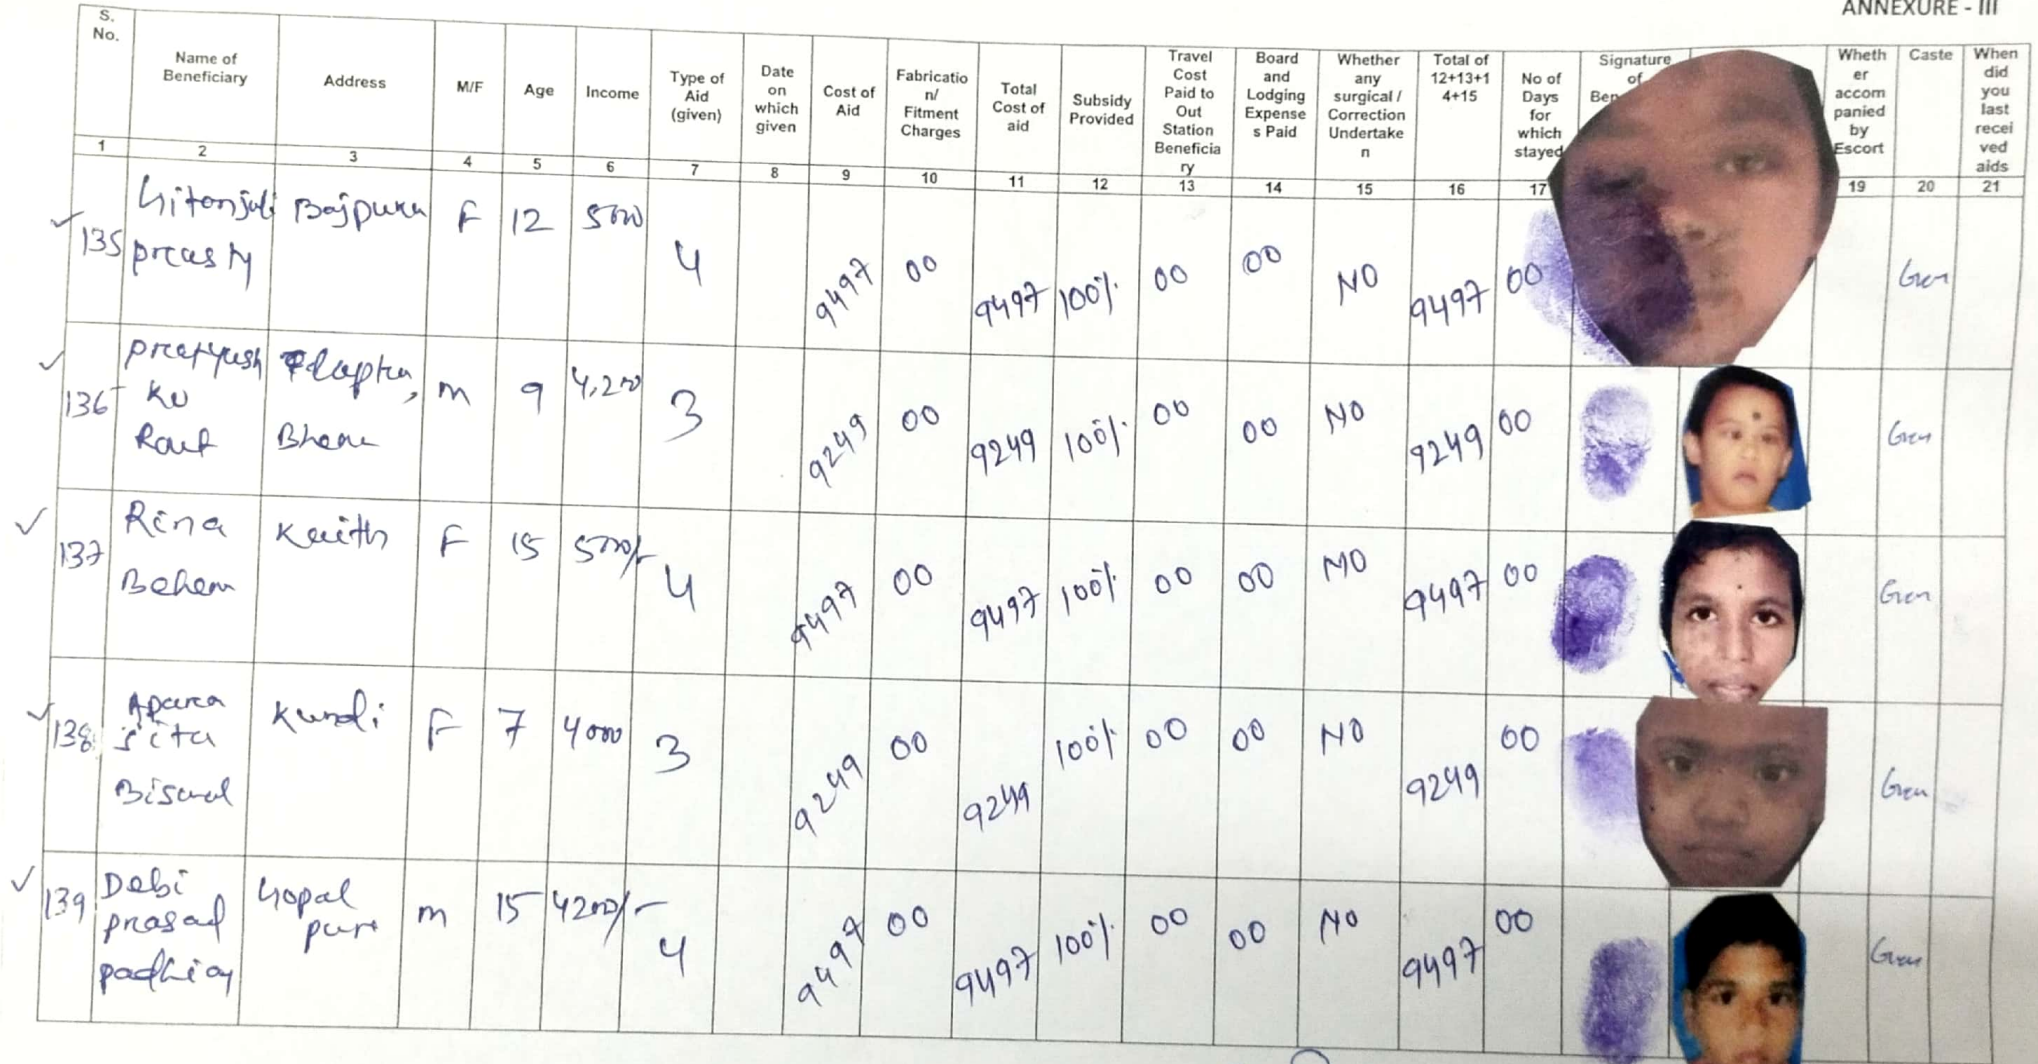 ANNEXURE - III
S. No.
Name of Beneficiary
Address
M/F
Age
Income
Type of Aid (given)
Date on which given
Cost of Aid
Fabrication/ Fitment Charges
Total Cost of aid
Subsidy Provided
Travel Cost Paid to Out Station Beneficiary
Board and Lodging Expenses Paid
Whether any surgical / Correction Undertaken
Total of 12+13+14+15
No of Days for which stayed
Signature of
Whether accompanied by Escort
Caste
When did you last received aids
1 2 3 4 5 6 7 8 9 10 11 12 13 14 15 16 17 19 20 21
135 F 12 5000 4 9497 00 9497 100% 00 00 NO 9497 00 Gen
136 Ku m 9 4,200 3 9249 00 9249 100% 00 00 NO 9249 00 Gen
137 Rina F 15 5000/- 4 9497 00 9497 100% 00 00 NO 9497 00 Gen
138 Kundi F 7 4000 3 9249 00 9249 100% 00 00 NO 9249 00 Gen
139 Debi prasad Gopal pur m 15 4200/- 4 9497 00 9497 100% 00 00 NO 9497 00 Gen